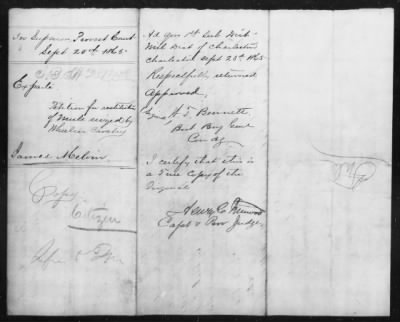 In Superior Provost Court
Sept 20th 1865
Exparte
Petition for restitution
of Mule seized by
Wheelers Cavalry
James Melvin
Copy
Citizen
Hd qrs 1st Sub Dist
Mil Dist of Charleston
Charleston Sept 25th 1865
Respectfully returned
approved,
W. T. Bennett
Bvt Brig Genl
Comdg
I certify that this is
a True Copy of the
Original
Capt & Pro Judge